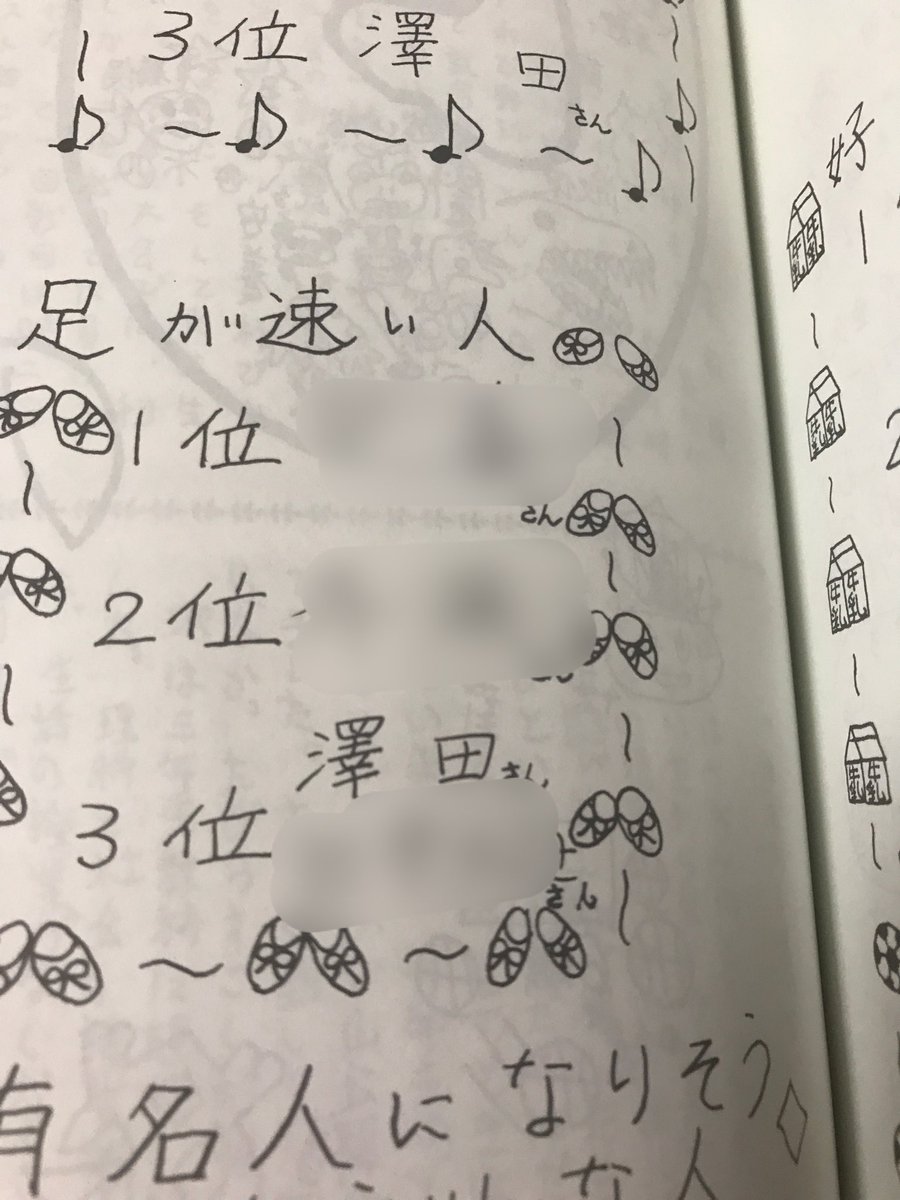 3位 澤田さん
足が速い人
1位 さん
2位
澤田さん
3位 さん
有名人になりそう
な人
好
牛乳 牛乳
牛乳 牛乳
牛乳 牛乳
牛乳 牛乳